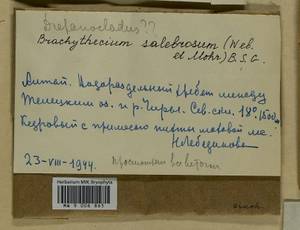 Drepanocladus??
Brachythecium salebrosum (Web.
et Mohr) B.S.G.
Алтай. Водораздельный хребет между
Телецким оз. и р. Чири. Сев. скл. 18° 1500 м
Кедровый с примесью пихты моховой лес.
Н Лебединова
23-VIII-1944.
Herbarium MW, Bryophyta
MW 9 006 865